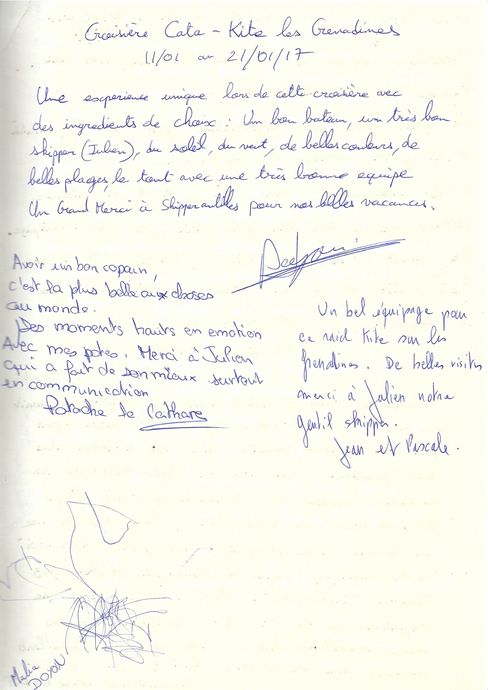 Croisière Cata - Kite les Grenadines
11/01 au 21/01/17
Une experience unique lors de cette croisière avec
des ingredients de choix : Un bon bateau, un très bon
skipper (Julien), du soleil, du vent, de belles couleurs, de
belles plages, le tout avec une très bonne equipe
Un Grand Merci à Skipperantilles pour nos belles vacances.
Avoir un bon copain,
c'est la plus belle aux choses
au monde.
Des moments hauts en emotion
Avec mes potes. Merci à Julien
qui a fait de son mieux surtout
en communication
Patoche le Cathare
Un bel équipage pour
ce raid Kite sur les
Grenadines. De belles visites
merci à Julien notre
gentil skipper.
Jean et Pascale.
DOYON